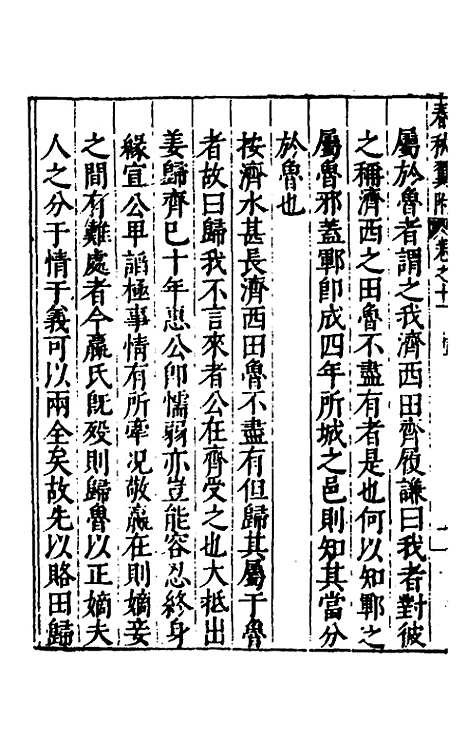 春秋翼附 卷之十一
屬於魯者謂之我濟西田齊履謙曰我者對彼
之稱濟西之田魯不盡有者是也何以知鄆之
屬魯邪蓋鄆卽成四年所城之邑則知其當分
於魯也
按濟水甚長濟西田魯不盡有但歸其屬于魯
者故曰歸我不言來者公在齊受之也大抵出
姜歸齊已十年惠公卽懦弱亦豈能容忍終身
緣宣公甲謟極事情有所牽况敬嬴在則嫡妾
之間有難處者今嬴氏旣歿則歸魯以正嫡夫
人之分于情于義可以兩全矣故先以賂田歸